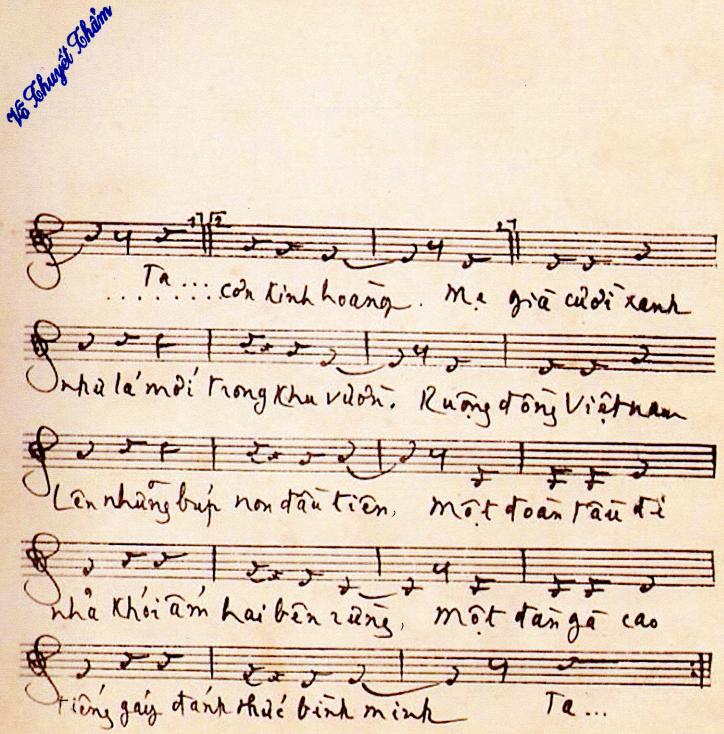 Võ Thuyết Thẩm
1 2 2
Ta ... cơn kinh hoàng. Mẹ già cười xanh
như lá mới trong khu vườn. Ruộng đồng Việt nam
Lên những búp non đầu tiên, một đoàn tàu đi
nhả khói ấm hai bên rừng, một đàn gà cao
tiếng gáy đánh thức bình minh Ta...